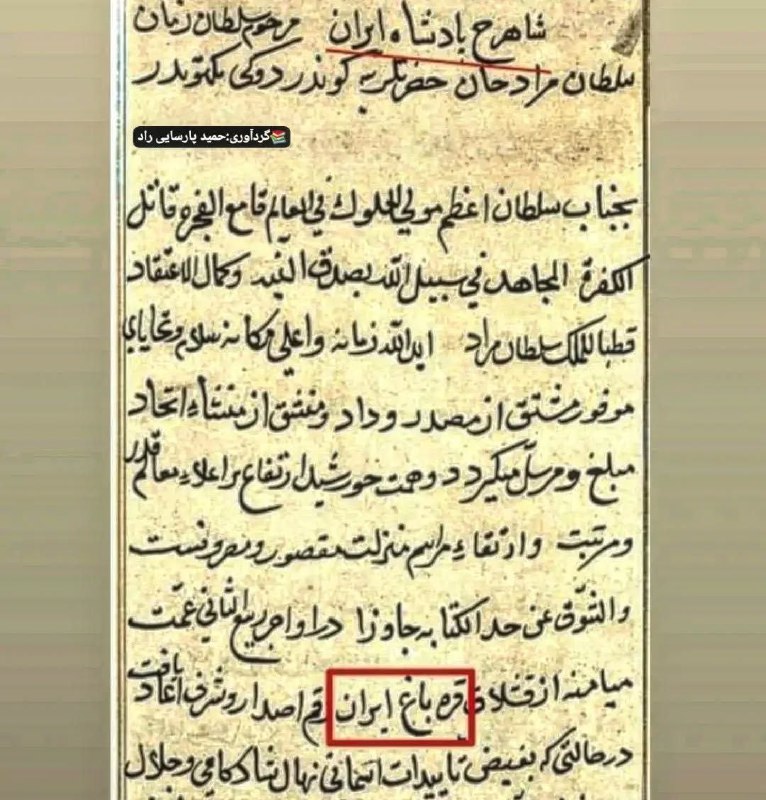 شاهرخ پادشاه ایران مرحوم سلطان زمان
سلطان مراد خان حضرتلرینه کوندردوکی مکتوبدر
📚گردآوری:حمید پارسایی راد
بجناب سلطان اعظم مولی الملوک فی العالم قامع الفجره قاتل
الکفرة المجاهد فی سبیل الله بصدق النیه وکمال الاعتقاد
قطبا للملک سلطان مراد ایدالله زمانه واعلی مکانه سلام وتحایای
موفور مشتق از مصدر وداد ومنشق از منشاء اتحاد
مبلغ ومرسل میکردد وهمت خورشید ارتفاع بر اعلاء معالم قدر
ومرتبت وارتقاء مراسم منزلت مقصور ومعروفست
والتشوق عن حد الکتابه جاوزا در اواخر ربیع الثانی عمت
میامنه از قشلاق قره باغ ایران رقم اصدار وشرف انفاذ یافت
در حالتی که بفیض تاییدات آسمانی نهال شادکامی وجلال